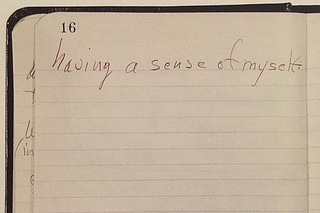 16
having a sense of myself.